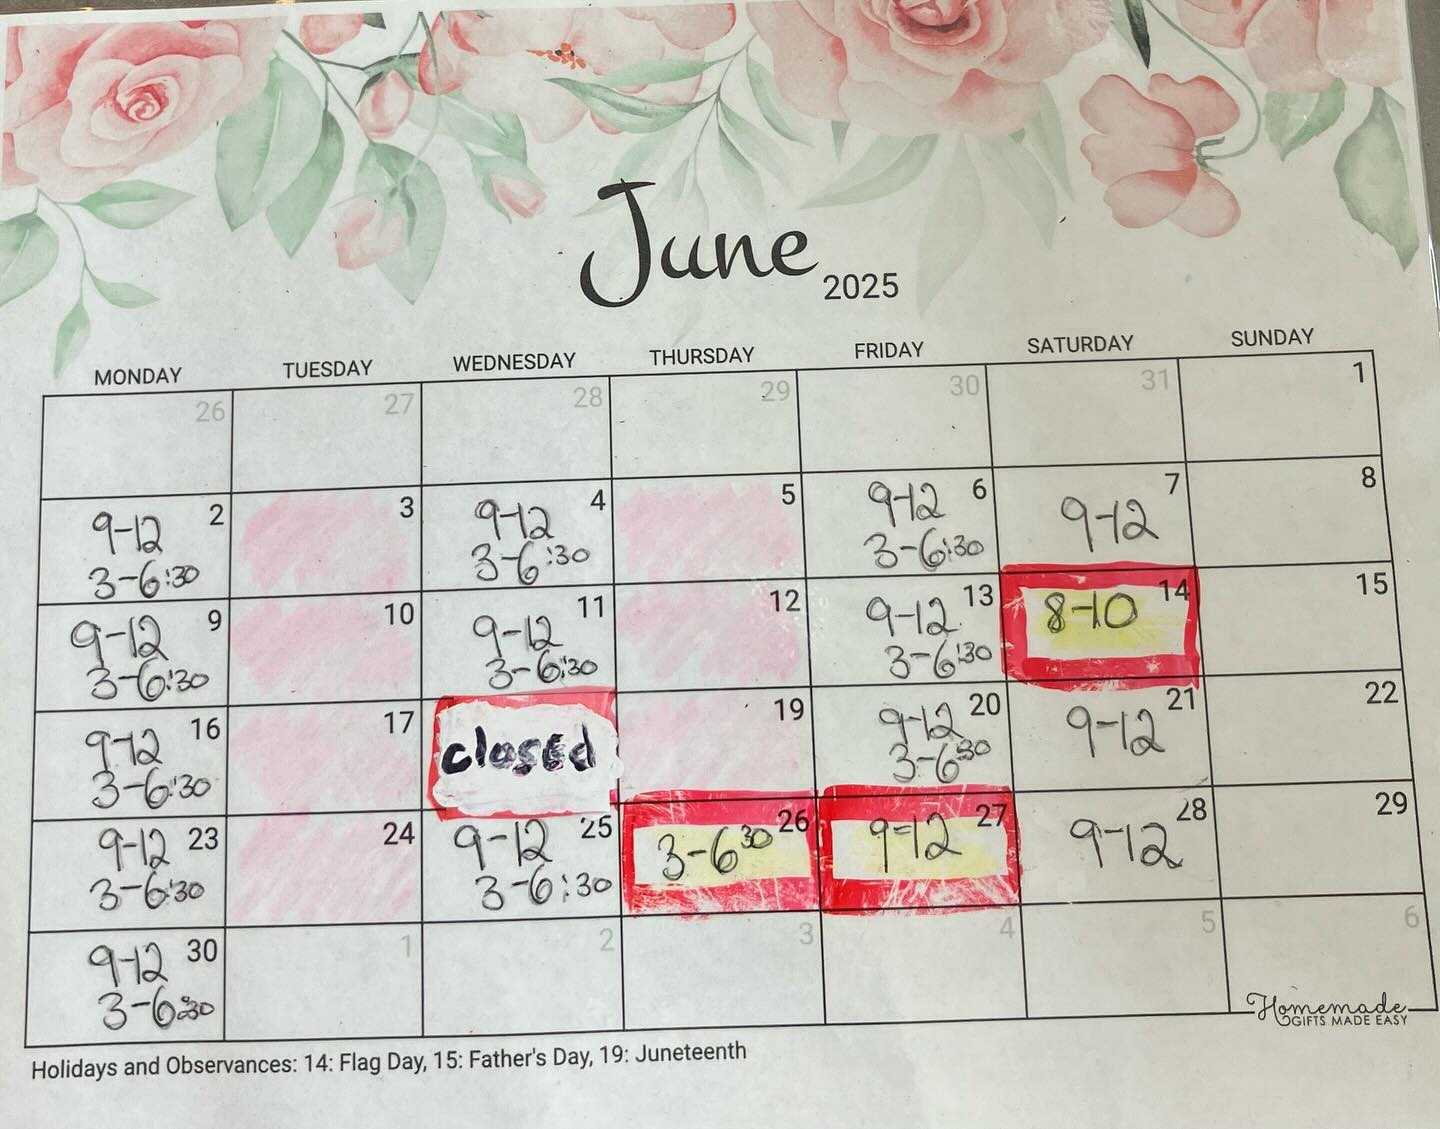 June 2025
MONDAY TUESDAY WEDNESDAY THURSDAY FRIDAY SATURDAY SUNDAY
26 27 28 29 30 31 1
2 3 4 5 6 7 8
9-12 9-12 9-12 9-12
3-6:30 3-6:30 3-6:30
9 10 11 12 13 14 15
9-12 9-12 9-12 8-10
3-6:30 3-6:30 3-6:30
16 17 19 20 21 22
9-12 closed 9-12 9-12
3-6:30 3-6:30
23 24 25 26 27 28 29
9-12 9-12 3-6 30 9-12 9-12
3-6:30 3-6:30
30 1 2 3 4 5 6
9-12
3-6:30
Homemade
GIFTS MADE EASY
Holidays and Observances: 14: Flag Day, 15: Father's Day, 19: Juneteenth